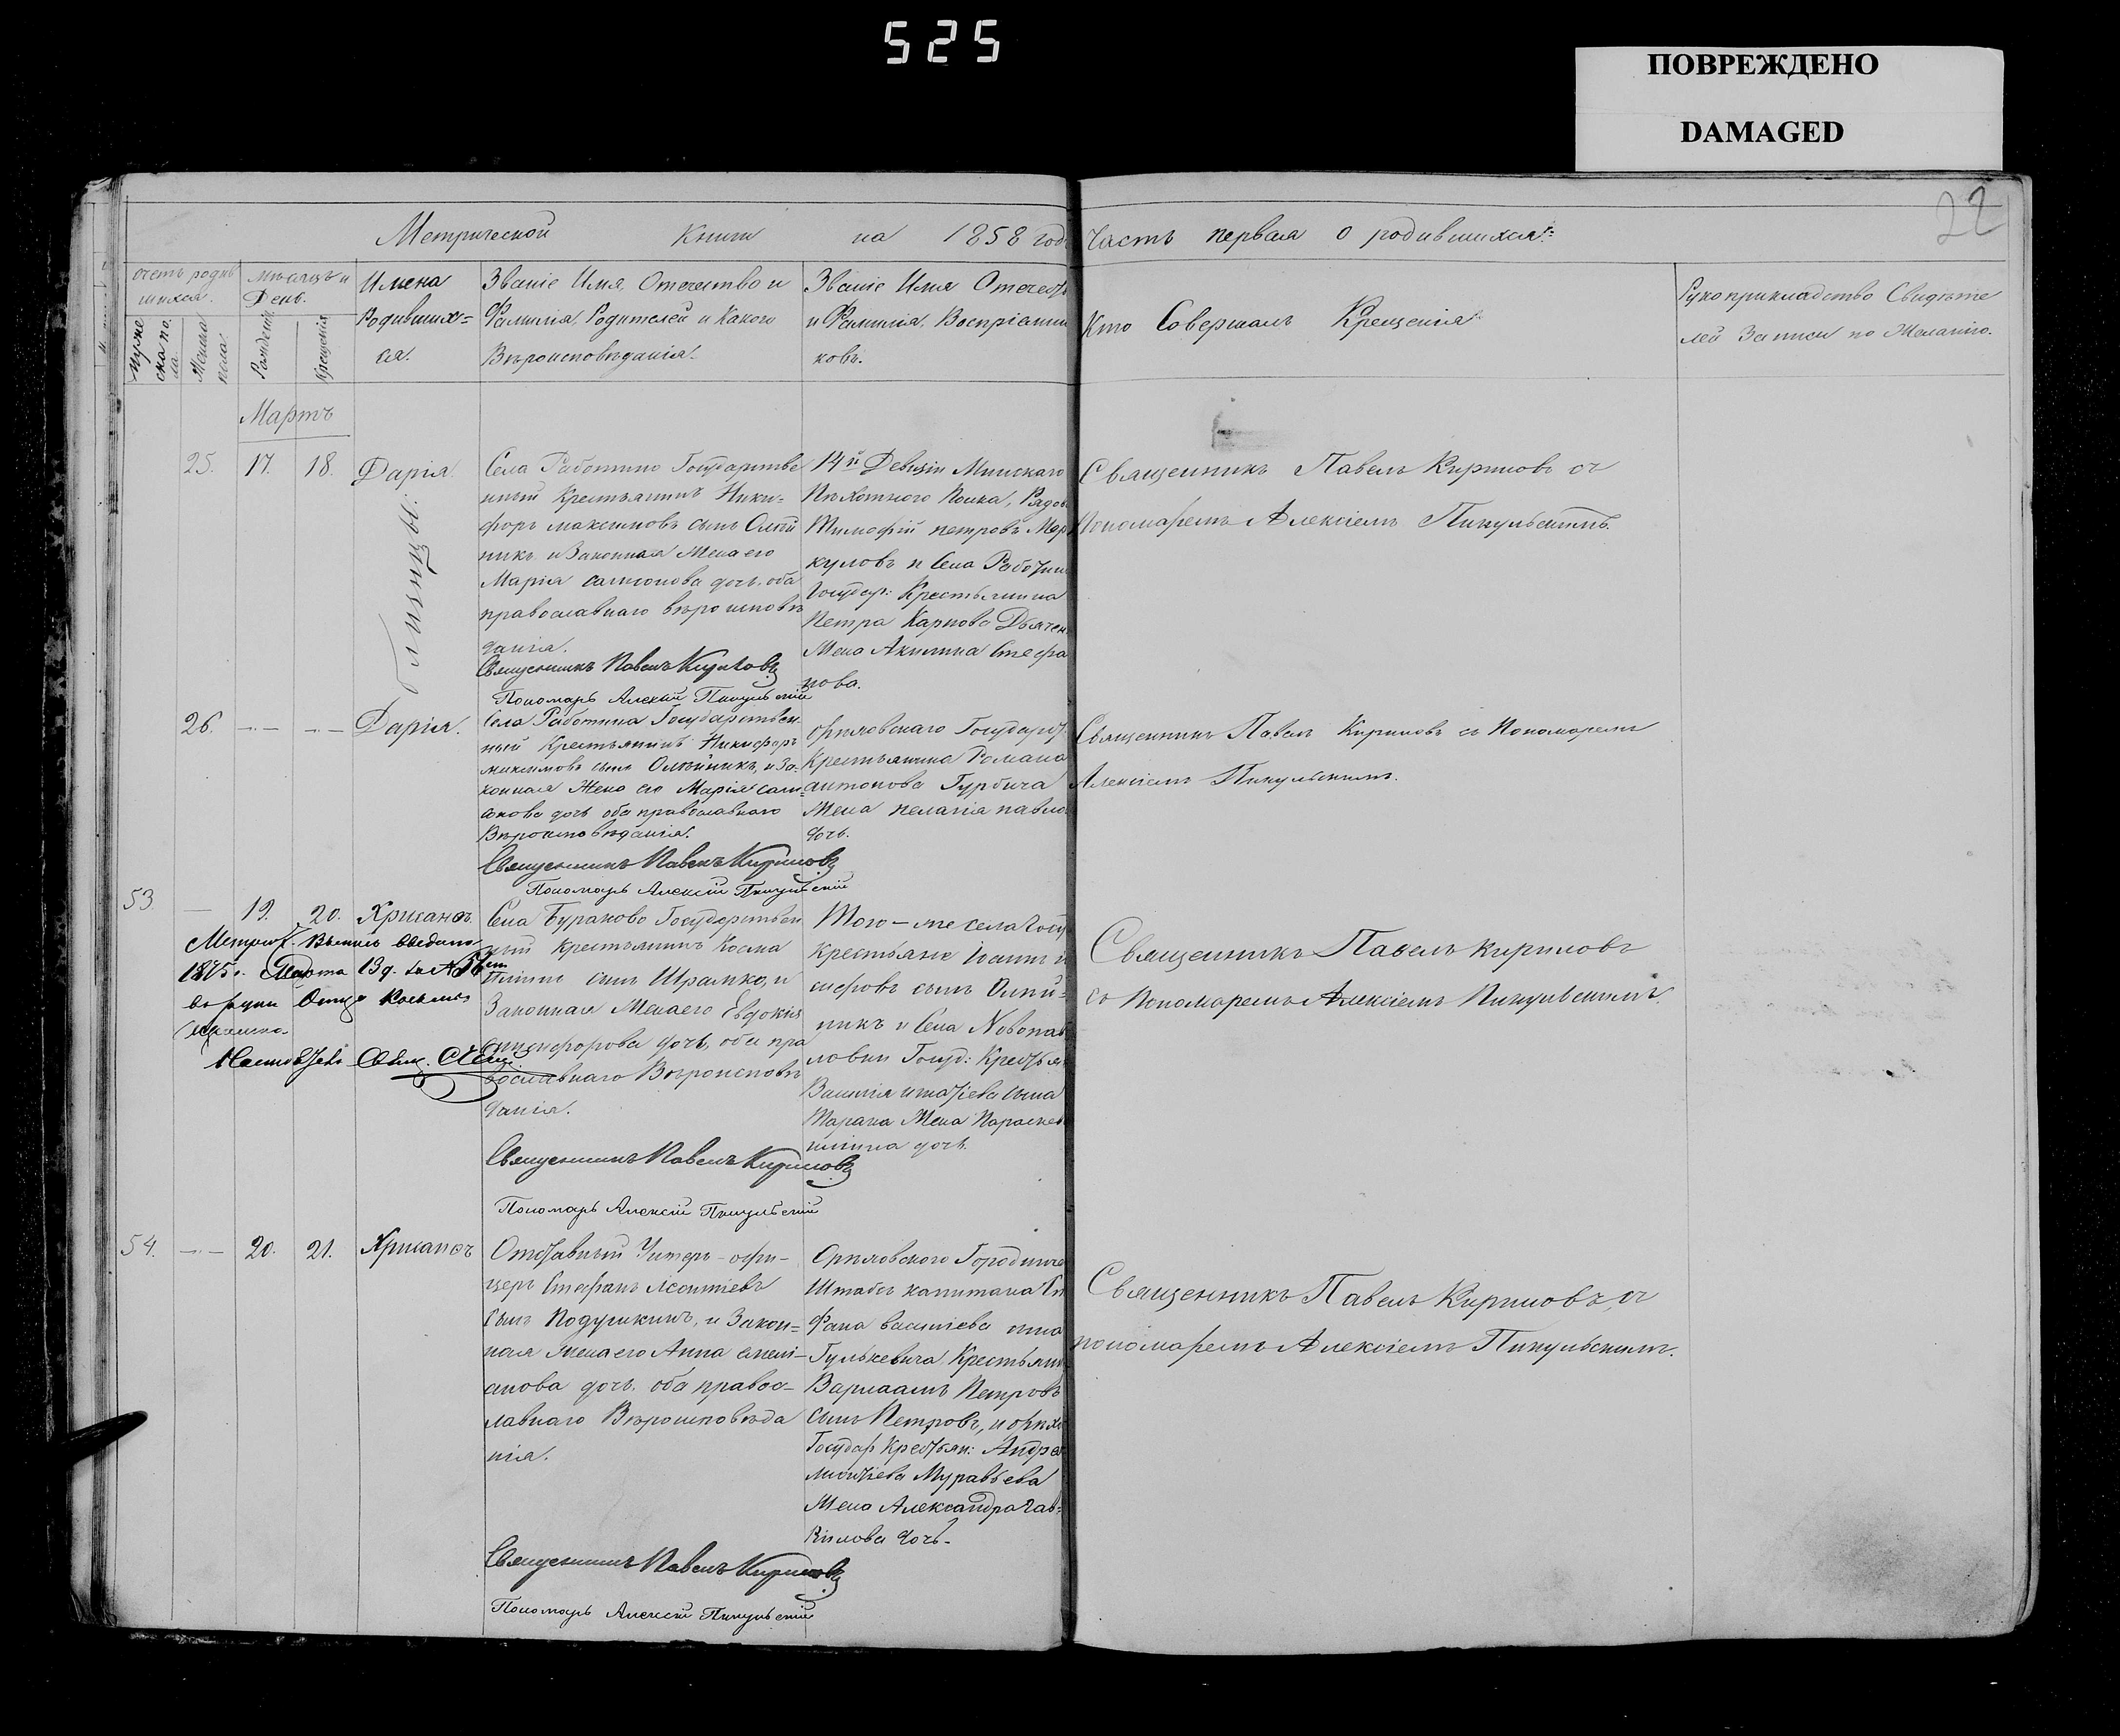 525
ПОВРЕЖДЕНО
DAMAGED
22
Метрической Книги на 1858 годъ
Часть первая о родившихся:
Счетъ родив
шихся.
Мужеска по
ла
Женска
пола
Мѣсяцъ и
День.
Рожденія
Крещенія
Имена
Родивших=
ся.
Званіе Имя, Отечество и
Фамилія, Родителей и Какого
Вѣроисповѣданія.
Званіе Имя Отечеств
и Фамилія, Воспріемни
ковъ.
Кто Совершалъ Крещенія
Рукоприкладство Свидѣте
лей Записи по Желанію.
Мартъ
25. 17. 18. Дарія.
близнецы.
Села Работино Государстве
нный Крестьянинъ Ники=
форъ максимовъ сынъ Олѣй
никъ и Законная Жена его
Марія самсонова дочь, оба
православнаго вѣроисповѣ
данія.
Священникъ Павелъ Кириловъ
Пономарь Алексій Пикульскій
14й Девизіи Минскаго
Пѣхотнаго Полка, Рядов
Тимофій петровъ Мер
куловъ и Села Работин
Государ: Крестьянина
Петра Карпова Дьячен
Жена Акилина Стефа
нова.
Священникъ Павелъ Кириловъ съ
Пономаремъ Алексіемъ Пикульскимъ.
26. — — Дарія.
Села Работина Государствен
ный Крестьянинъ Никифоръ
максимовъ сынъ Олѣйникъ, и За=
конная Жена его Марія сам=
сонова дочь оба православнаго
Вѣроисповѣданія.
Священникъ Павелъ Кириловъ
Пономарь Алексій Пикульскій
орѣховскаго Государст.
Крестьянина Романа
антонова Гурбича
Жена пелагія павло
дочь.
Священникъ Павелъ Кириловъ съ Пономаремъ
Алексіемъ Пикульскимъ.
53. — 19. 20. Хрисанѳъ.
Метрич. Выпись выдана
1875 г. Марта 13 д. за №
въ руки Отца Косьмы
Шрамко.
Села Бураково Государствен
ный Крестьянинъ Косма
сынъ Шрамко, и
Законная Жена его Евдокія
никифорова дочь, оба пра
вославнаго Вѣроисповѣ
данія.
Священникъ Павелъ Кириловъ
Пономарь Алексій Пикульскій
Того-же села Госу
крестьяне Іоаннъ
сынъ Олѣй=
никъ и Села Новопав
ловки Госуд: Крестья
Василія игнатіева сына
Тарана Жена Параскев
дочь.
Священникъ Павелъ Кириловъ
съ Пономаремъ Алексіемъ Пикульскимъ.
54. — 20. 21. Хрисанѳъ
Отставный Унтеръ-офи-
церъ Стефанъ Леонтіевъ
сынъ Подушкинъ, и Закон=
ная жена его Анна
дочь. оба правос-
лавнаго Вѣроисповѣда
нія.
Священникъ Павелъ Кириловъ
Пономарь Алексій Пикульскій
Орѣховскаго Городниче
Штабсъ капитана Сте
фана василіева сына
Гулькевича Крестьянин
Варлаамъ Петровъ
сынъ Петровъ, и орѣхо
Государ Крестьян: Андрея
Муравьева
Жена Александра Гав=
рилова дочь.
Священникъ Павелъ Кириловъ, съ
пономаремъ Алексіемъ Пикульскимъ.